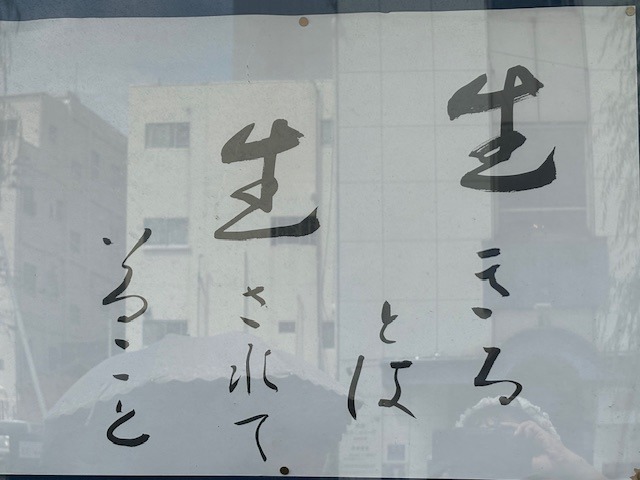 生きる
とは
生されて
いること